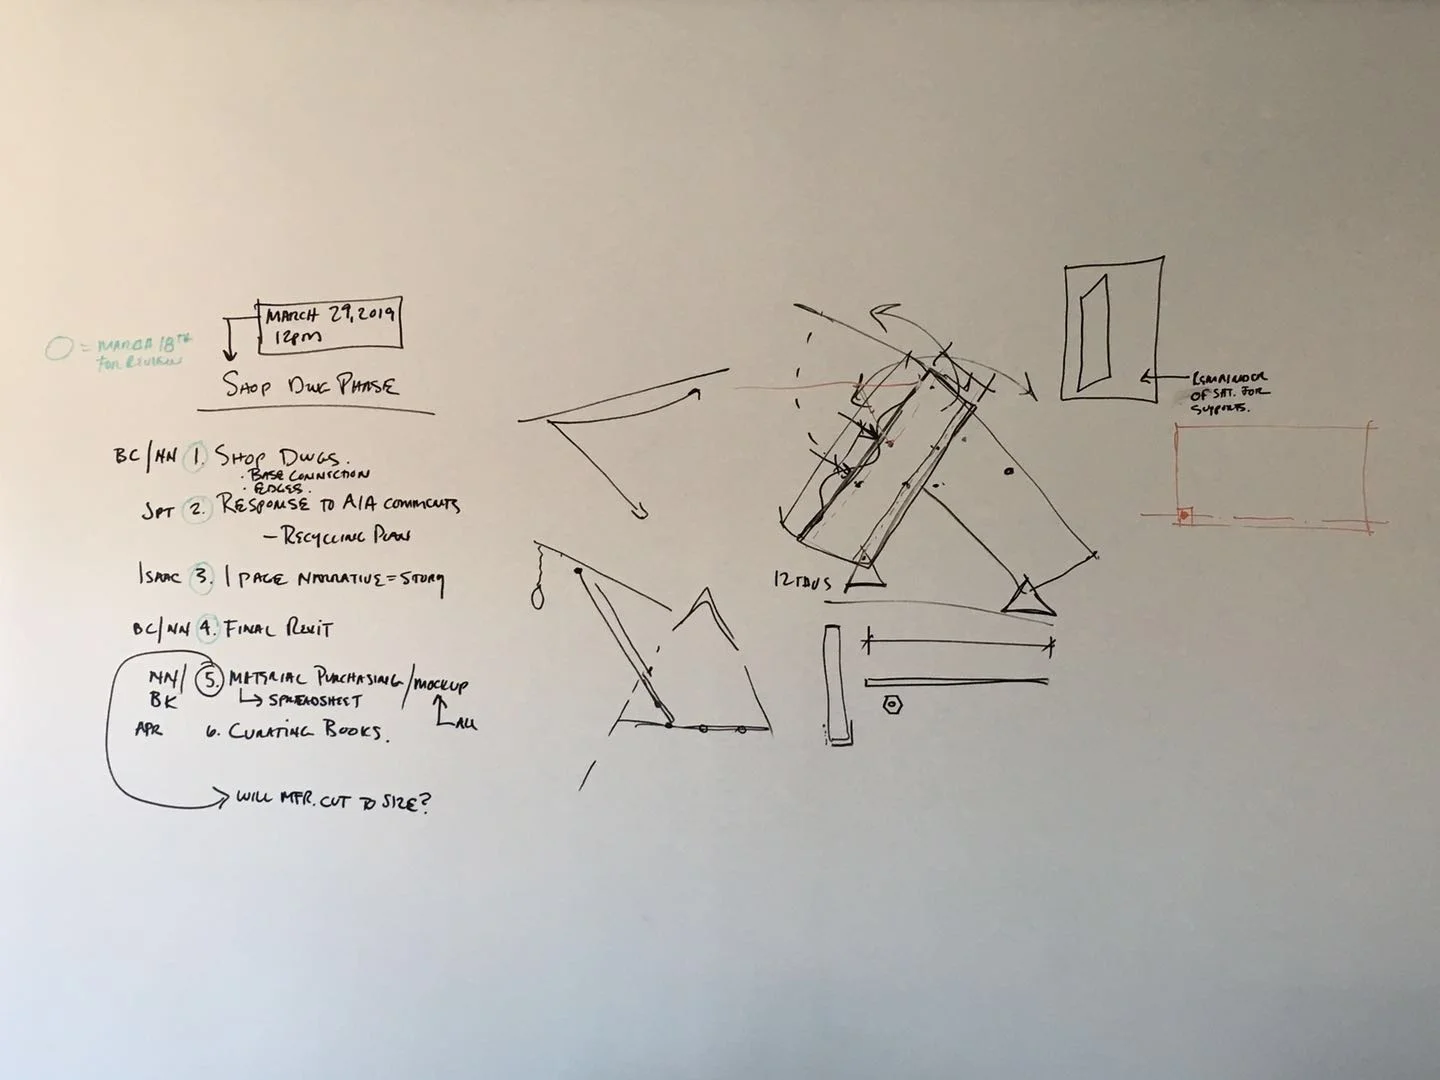 MARCH 29, 2019
12PM
= MARCH 18TH
FOR REVIEW
SHOP DWG PHASE
BC/NN 1. SHOP DWGS.
· BASE CONNECTION
· EDGES.
JPT 2. RESPONSE TO AIA COMMENTS
– RECYCLING PLAN
ISAAC 3. 1 PAGE NARRATIVE = STORY
BC/NN 4. FINAL REVIT
NN/ 5. MATERIAL PURCHASING/MOCKUP
BK SPREADSHEET
ALL
APR 6. CURATING BOOKS.
WILL MFR. CUT TO SIZE?
12
REMAINDER
OF SHT. FOR
SUPPORTS.